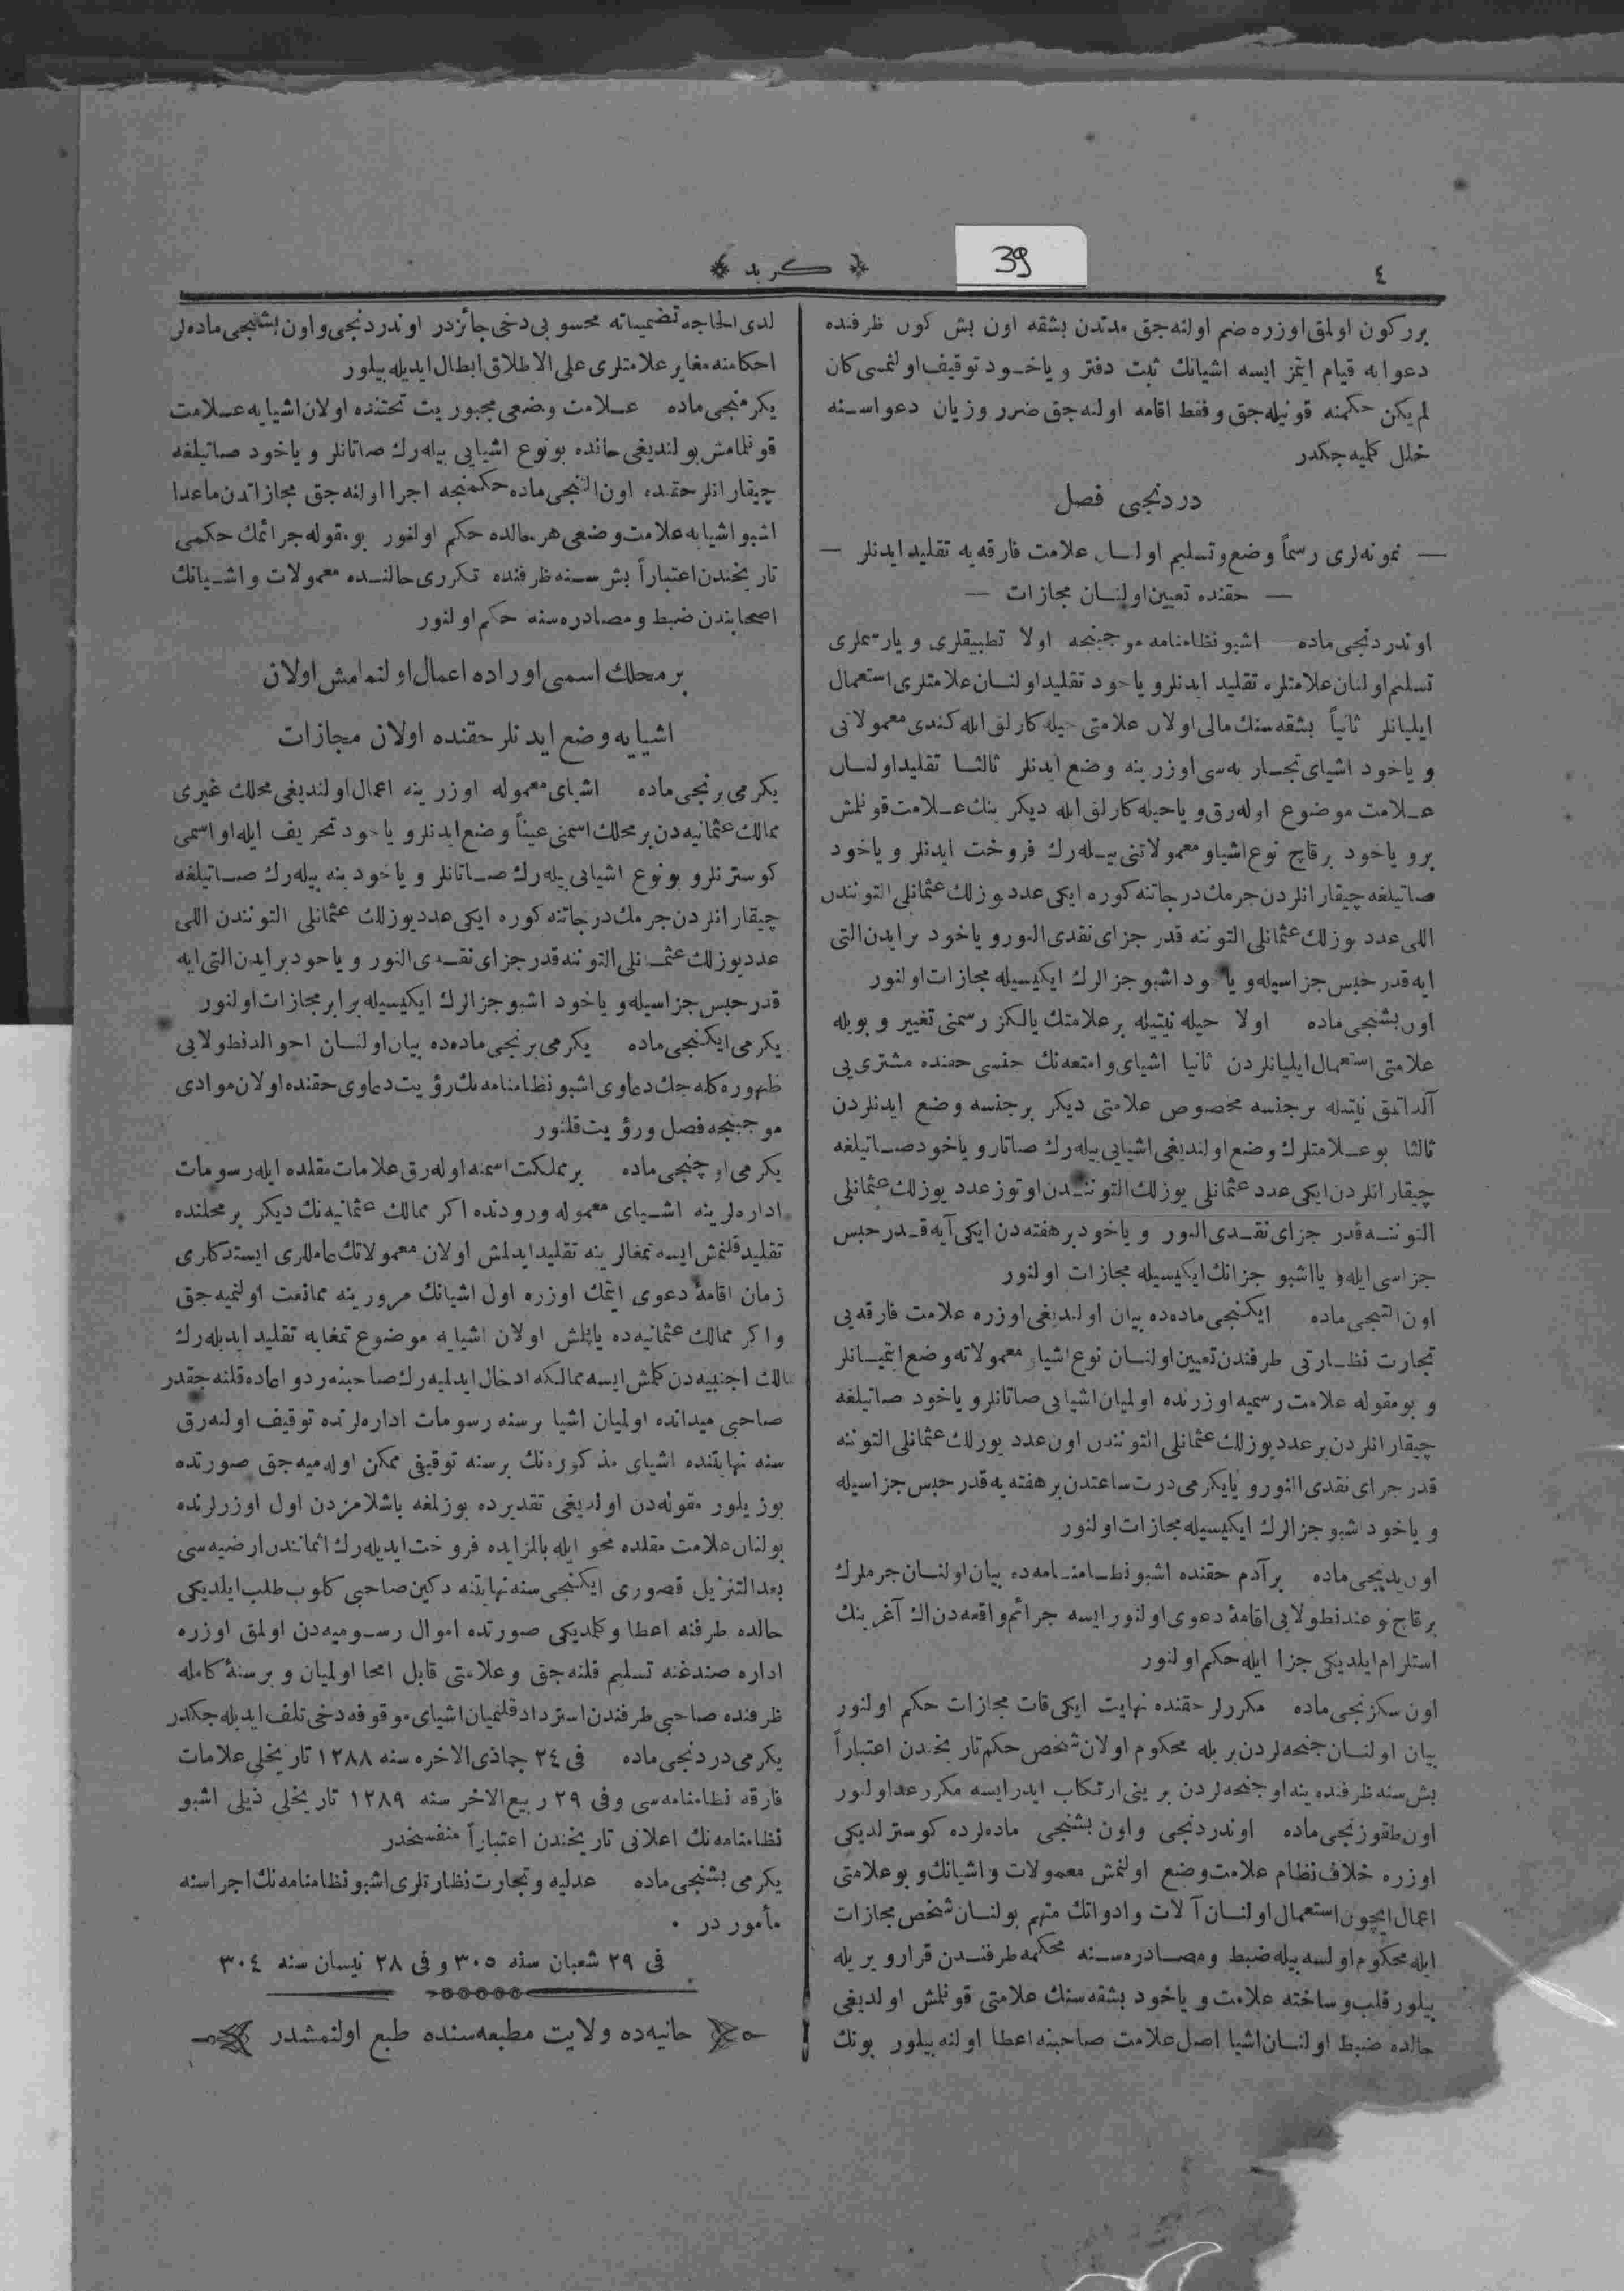 ٤
39
﴿ كريد ﴾
برر كون اولمق اوزره ضم اولنه جق مدتدن بشقه اون بش كون ظرفنده
دعوايه قيام ايتمز ايسه اشيانك ثبت دفتر و ياخود توقيف اولنمسى كان
لم يكن حكمنه قونيله جق و فقط اقامه اولنه جق ضرر و زيان دعواسنه
خلل كلميه جكدر
دردنجى فصل
— نمونه لرى رسماً وضع و تسليم اولنان علامت فارقه يه تقليد ايدنلر —
— حقنده تعيين اولنان مجازات —
اوندردنجى ماده اشبو نظامنامه موجبنجه اولا تطبيقلرى و يا رسملرى
تسليم اولنان علامتلره تقليد ايدنلر و ياخود تقليد اولنان علامتلرى استعمال
ايليانلر ثانياً بشقه سنك مالى اولان علامتى حيله كارلق ايله كندى معمولاتى
و ياخود اشياى تجاريه سى اوزرينه وضع ايدنلر ثالثا تقليد اولنان
علامت موضوع اوله رق و يا حيله كارلق ايله ديكرينك علامت قونلمش
برو ياخود برقاچ نوع اشيا و معمولاتنى بيله رك فروخت ايدنلر و ياخود
صاتيلغه چيقارانلردن جرمك درجاتنه كوره ايكى عدد يوزلك عثمانلى التونندن
اللى عدد يوزلك عثمانلى التوننه قدر جزاى نقدى النور و ياخود بر ايدن التى
ايه قدر حبس جزاسيله و ياخود اشبو جزالرك ايكيسيله مجازات اولنور
اون بشنجى ماده اولا حيله نيتيله بر علامتك يالكز رسمنى تغيير و بويله
علامتى استعمال ايليانلردن ثانيا اشياى و امتعه نك جنسى حقنده مشترى يى
آلداتمق نيتيله بر جنسه مخصوص علامتى ديكر بر جنسه وضع ايدنلردن
ثالثا بو علامتلرك وضع اولنديغى اشيايى بيله رك صاتار و ياخود صاتيلغه
چيقارانلردن ايكى عدد عثمانلى يوزلك التونندن اوتوز عدد يوزلك عثمانلى
التوننه قدر جزاى نقدى النور و ياخود بر هفته دن ايكى آيه قدر حبس
جزاسى ايله و يا اشبو جزانك ايكيسيله مجازات اولنور
اون التنجى ماده ايكنجى ماده ده بيان اولنديغى اوزره علامت فارقه يى
تجارت نظارتى طرفندن تعيين اولنان نوع اشيا و معمولاته وضع ايتميانلر
و بو مقوله علامت رسميه اوزرنده اولميان اشيايى صاتانلر و ياخود صاتيلغه
چيقارانلردن بر عدد يوزلك عثمانلى التونندن اون عدد يوزلك عثمانلى التوننه
قدر جزاى نقدى النور و يا يكرمى درت ساعتدن بر هفته يه قدر حبس جزاسيله
و ياخود اشبو جزالرك ايكيسيله مجازات اولنور
اون يدنجى ماده برآدم حقنده اشبو نظامنامه ده بيان اولنان جرملرك
برقاچ نوعندنطولايى اقامهٔ دعوى اولنور ايسه جرائم واقعه دن اك آغرينك
استلزام ايلديكى جزا ايله حكم اولنور
اون سكزنجى ماده مكررلر حقنده نهايت ايكى قات مجازات حكم اولنور
بيان اولنان جنحه لردن بريله محكوم اولان شخص حكم تاريخندن اعتباراً
بش سنه ظرفنده ينه او جنحه لردن برينى ارتكاب ايدر ايسه مكرر عد اولنور
اون طقوزنجى ماده اوندردنجى و اون بشنجى ماده لرده كوسترلديكى
اوزره خلاف نظام علامت وضع اولنمش معمولات و اشيانك و بو علامتى
اعمال ايچون استعمال اولنان آلات و ادواتك متهم بولنان شخص مجازات
ايله محكوم اولسه بيله ضبط و مصادره سنه محكمه طرفندن قرار ويريله
بيلور قلب و ساخته علامت و ياخود بشقه سنك علامتى قونلمش اولديغى
حالده ضبط اولنان اشيا اصل علامت صاحبنه اعطا اولنه بيلور بونك
لدى الحاجه تضميناته محسوبى دخى جائزدر اوندردنجى و اون بشنجى ماده لر
احكامنه مغاير علامتلرى على الاطلاق ابطال ايديله بيلور
يكرمنجى ماده علامت وضعى مجبوريت تحتنده اولان اشيايه علامت
قونلمامش بولنديغى حالده بو نوع اشيايى بيله رك صاتانلر و ياخود صاتيلغه
چيقارانلر حقنده اون التنجى ماده حكمنجه اجرا اولنه جق مجازاتدن ماعدا
اشبو اشيايه علامت وضعى هر حالده حكم اولنور بو مقوله جرائمك حكمى
تاريخندن اعتباراً بش سنه ظرفنده تكررى حالنده معمولات و اشيانك
اصحابندن ضبط و مصادره سنه حكم اولنور
بر محلك اسمى اوراده اعمال اولنمامش اولان
اشيايه وضع ايدنلر حقنده اولان مجازات
يكرمى برنجى ماده اشياى معموله اوزرينه اعمال اولنديغى محلك غيرى
ممالك عثمانيه دن بر محلك اسمنى عيناً وضع ايدنلر و ياخود تحريف ايله او اسمى
كوسترنلر و بو نوع اشيايى بيله رك صاتانلر و ياخود ينه بيله رك صاتيلغه
چيقارانلردن جرمك درجاتنه كوره ايكى عدد يوزلك عثمانلى التونندن اللى
عدد يوزلك عثمانلى التوننه قدر جزاى نقدى النور و ياخود بر ايدن التى ايه
قدر حبس جزاسيله و ياخود اشبو جزالرك ايكيسيله برابر مجازات اولنور
يكرمى ايكنجى ماده يكرمى برنجى ماده ده بيان اولنان احوالدنطولايى
ظهوره كله جك دعاوى اشبو نظامنامه نك رؤيت دعاوى حقنده اولان موادى
موجبنجه فصل و رؤيت قلنور
يكرمى اوچنجى ماده بر مملكت اسمنه اوله رق علامات مقلده ايله رسومات
اداره لرينه اشياى معموله ورودنده اكر ممالك عثمانيه نك ديكر بر محلنده
تقليد قلنمش ايسه تمغالرينه تقليد ايدلمش اولان معمولاتك عامللرى ايستدكلرى
زمان اقامهٔ دعوى ايتمك اوزره اول اشيانك مرورينه ممانعت اولنميه جق
و اكر ممالك عثمانيه ده ياپلمش اولان اشيايه موضوع تمغايه تقليد ايديله رك
ممالك اجنبيه دن كلمش ايسه ممالكه ادخال ايدلميه رك صاحبنه رد و اعاده قلنه جقدر
صاحبى ميدانده اولميان اشيا بر سنه رسومات اداره لرنده توقيف اولنه رق
سنه نهايتنده اشياى مذكوره نك بر سنه توقيفى ممكن اوله ميه جق صورتده
بوزيلور مقوله دن اولديغى تقديرده بوزلمغه باشلامزدن اول اوزرلرنده
بولنان علامت مقلده محو ايله بالمزايده فروخت ايديله رك اثمانندن ارضيه سى
بعد التنزيل قصورى ايكنجى سنه نهايتنه دكين صاحبى كلوب طلب ايلديكى
حالده طرفنه اعطا و كلمديكى صورتده اموال رسوميه دن اولمق اوزره
اداره صندغنه تسليم قلنه جق و علامتى قابل امحا اولميان و بر سنهٔ كامله
ظرفنده صاحبى طرفندن استرداد قلنميان اشياى موقوفه دخى تلف ايديله جكدر
يكرمى دردنجى ماده فى ٢٤ جماذى الاخره سنه ١٢٨٨ تاريخلى علامات
فارقه نظامنامه سى و فى ٢٩ ربيع الاخر سنه ١٢٨٩ تاريخلى ذيلى اشبو
نظامنامه نك اعلانى تاريخندن اعتباراً منفسخدر
يكرمى بشنجى ماده عدليه و تجارت نظارتلرى اشبو نظامنامه نك اجراسنه
مأموردر ٠
فى ٢٩ شعبان سنه ٣٠٥ و فى ٢٨ نيسان سنه ٣٠٤
حانيه ده ولايت مطبعه سنده طبع اولنمشدر